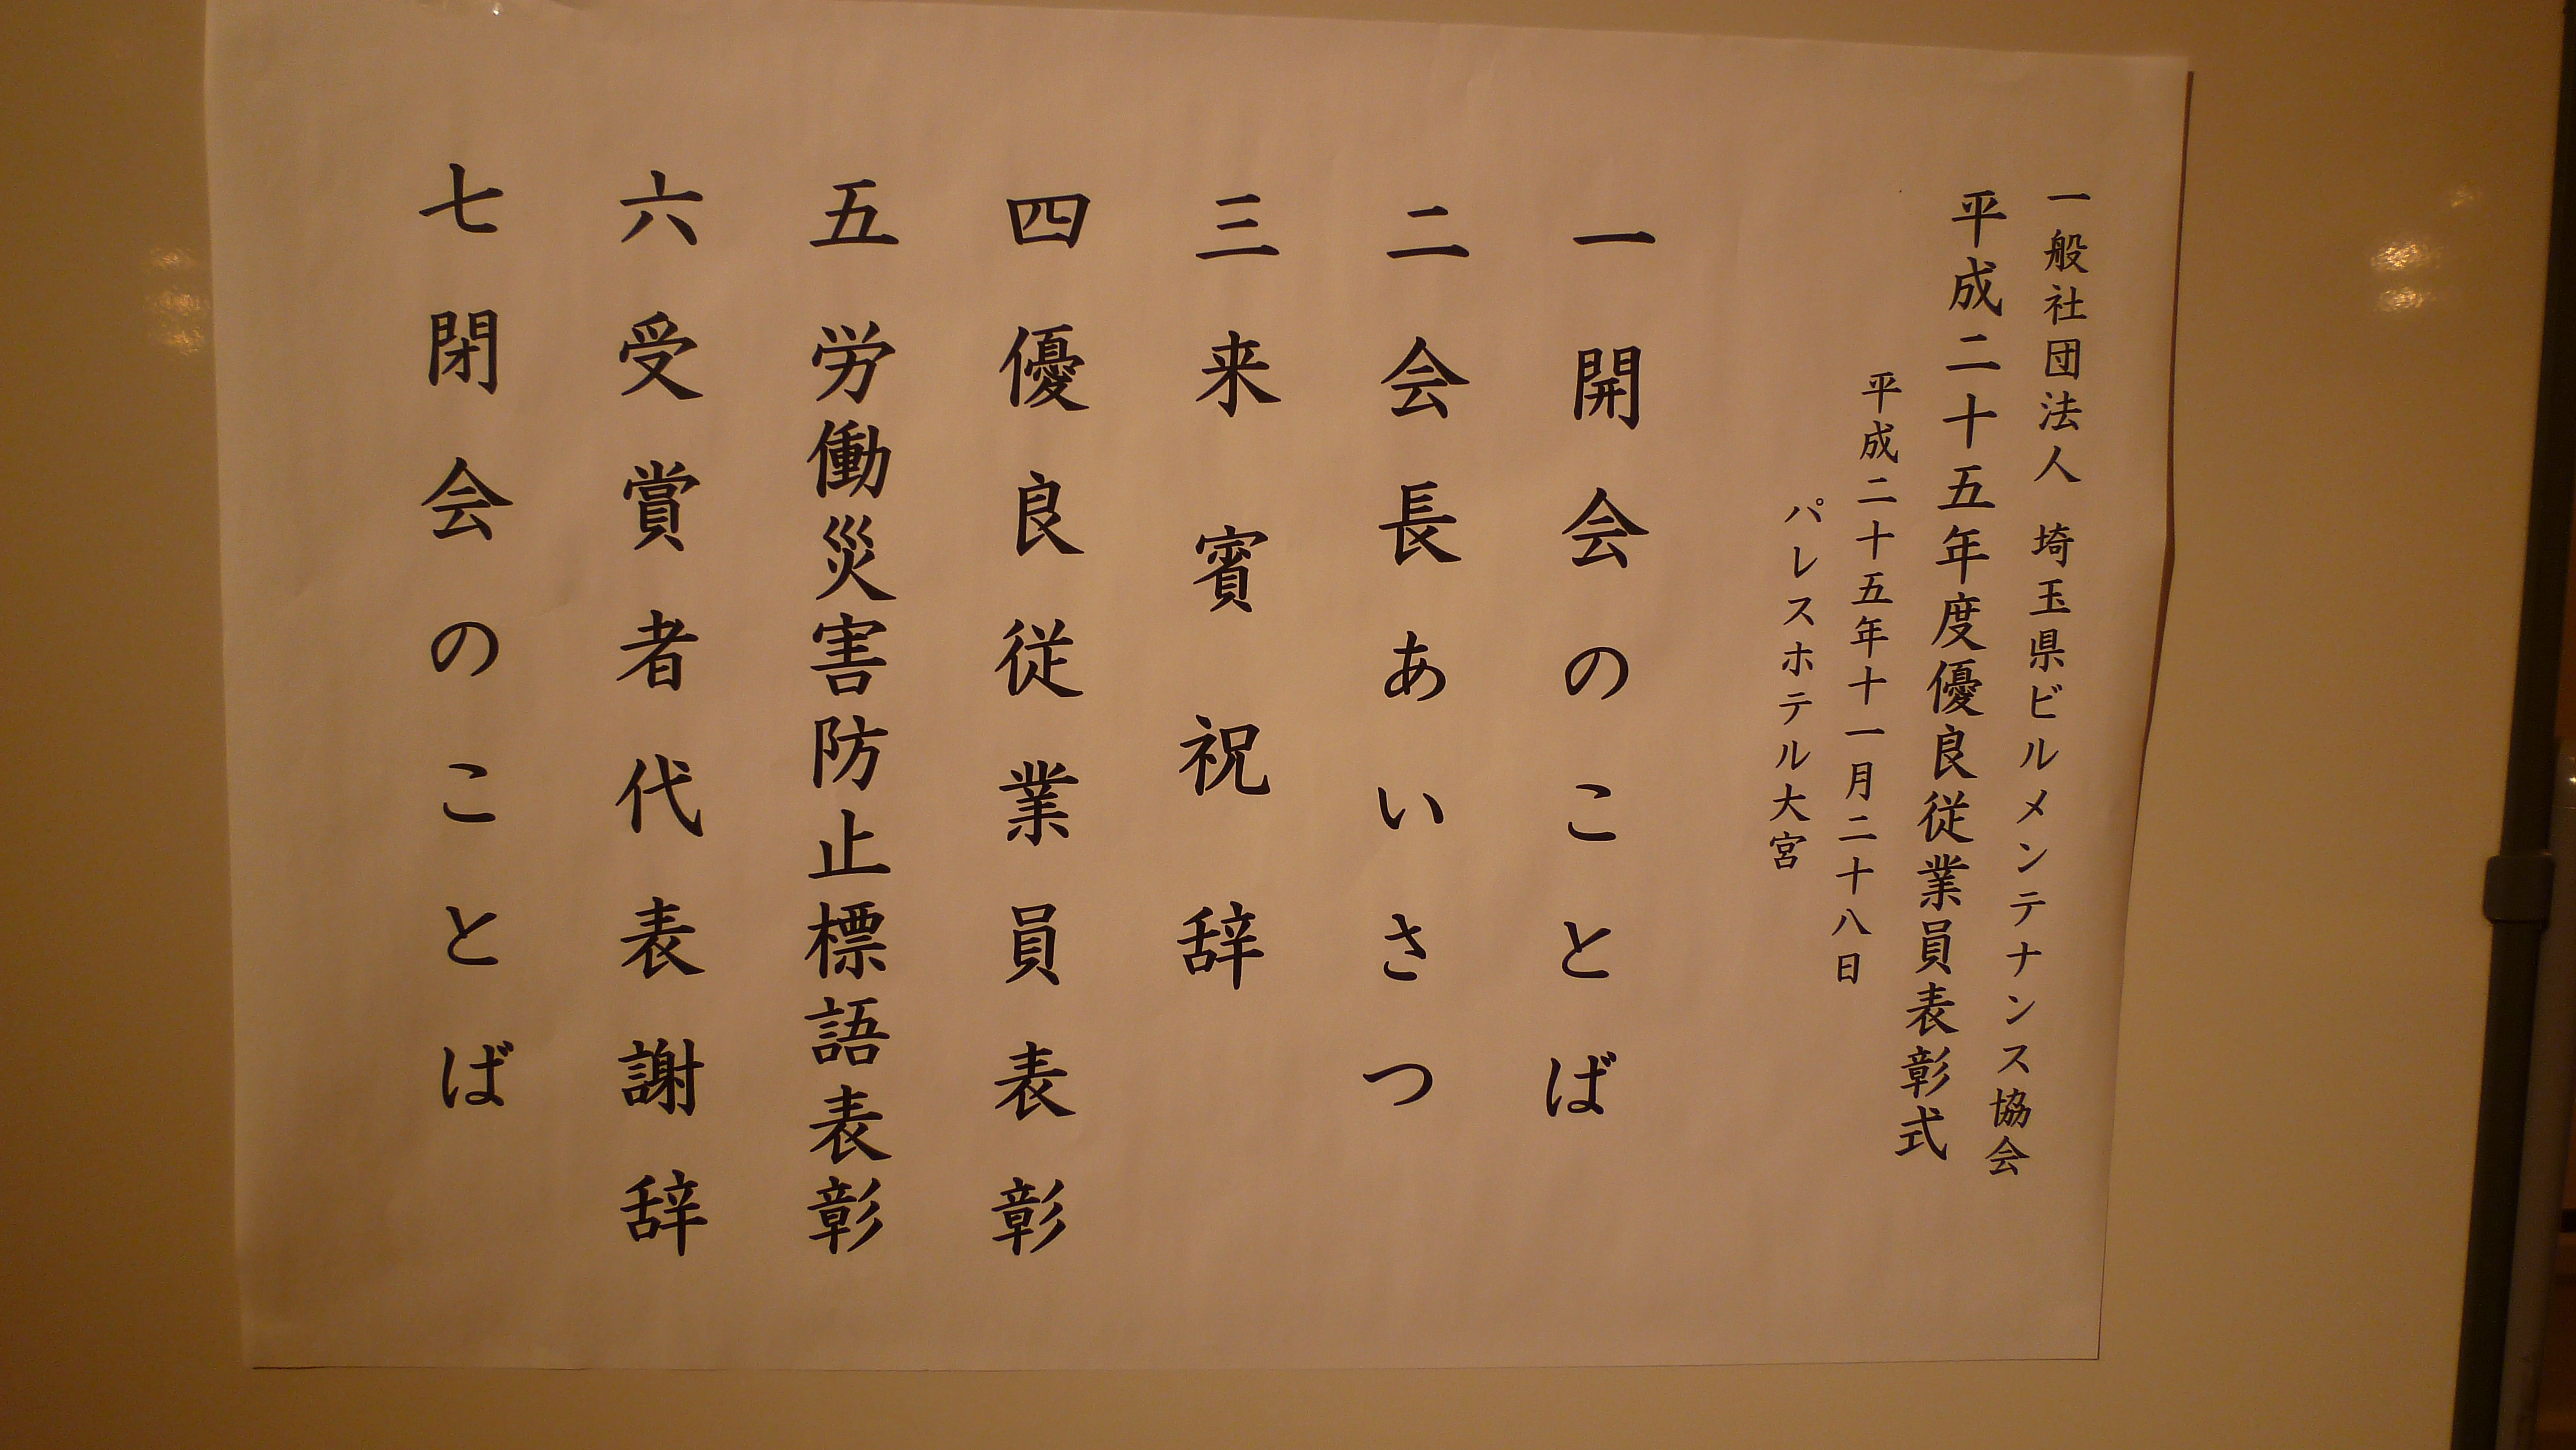 一般社団法人 埼玉県ビルメンテナンス協会
平成二十五年度優良従業員表彰式
平成二十五年十一月二十八日
パレスホテル大宮
一 開会のことば
二 会長あいさつ
三 来賓祝辞
四 優良従業員表彰
五 労働災害防止標語表彰
六 受賞者代表謝辞
七 閉会のことば